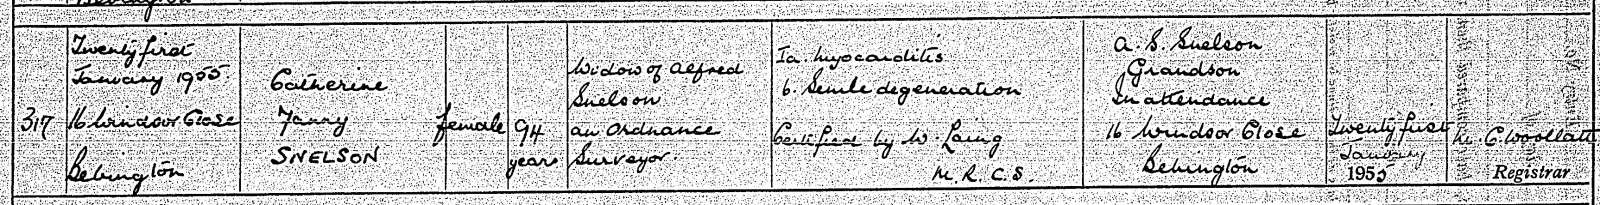 317
Twenty first
January 1955.
16 Windsor Close
Bebington
Catherine
Fanny
SNELSON
female
94
years
Widow of Alfred
Snelson
an Ordnance
Surveyor.
Ia. Myocarditis
b. Senile degeneration
Certified by W. Laing
M. R. C. S.
A. S. Snelson
Grandson
In attendance
16 Windsor Close
Bebington
Twenty first
January
1955
C. Woollatt
Registrar